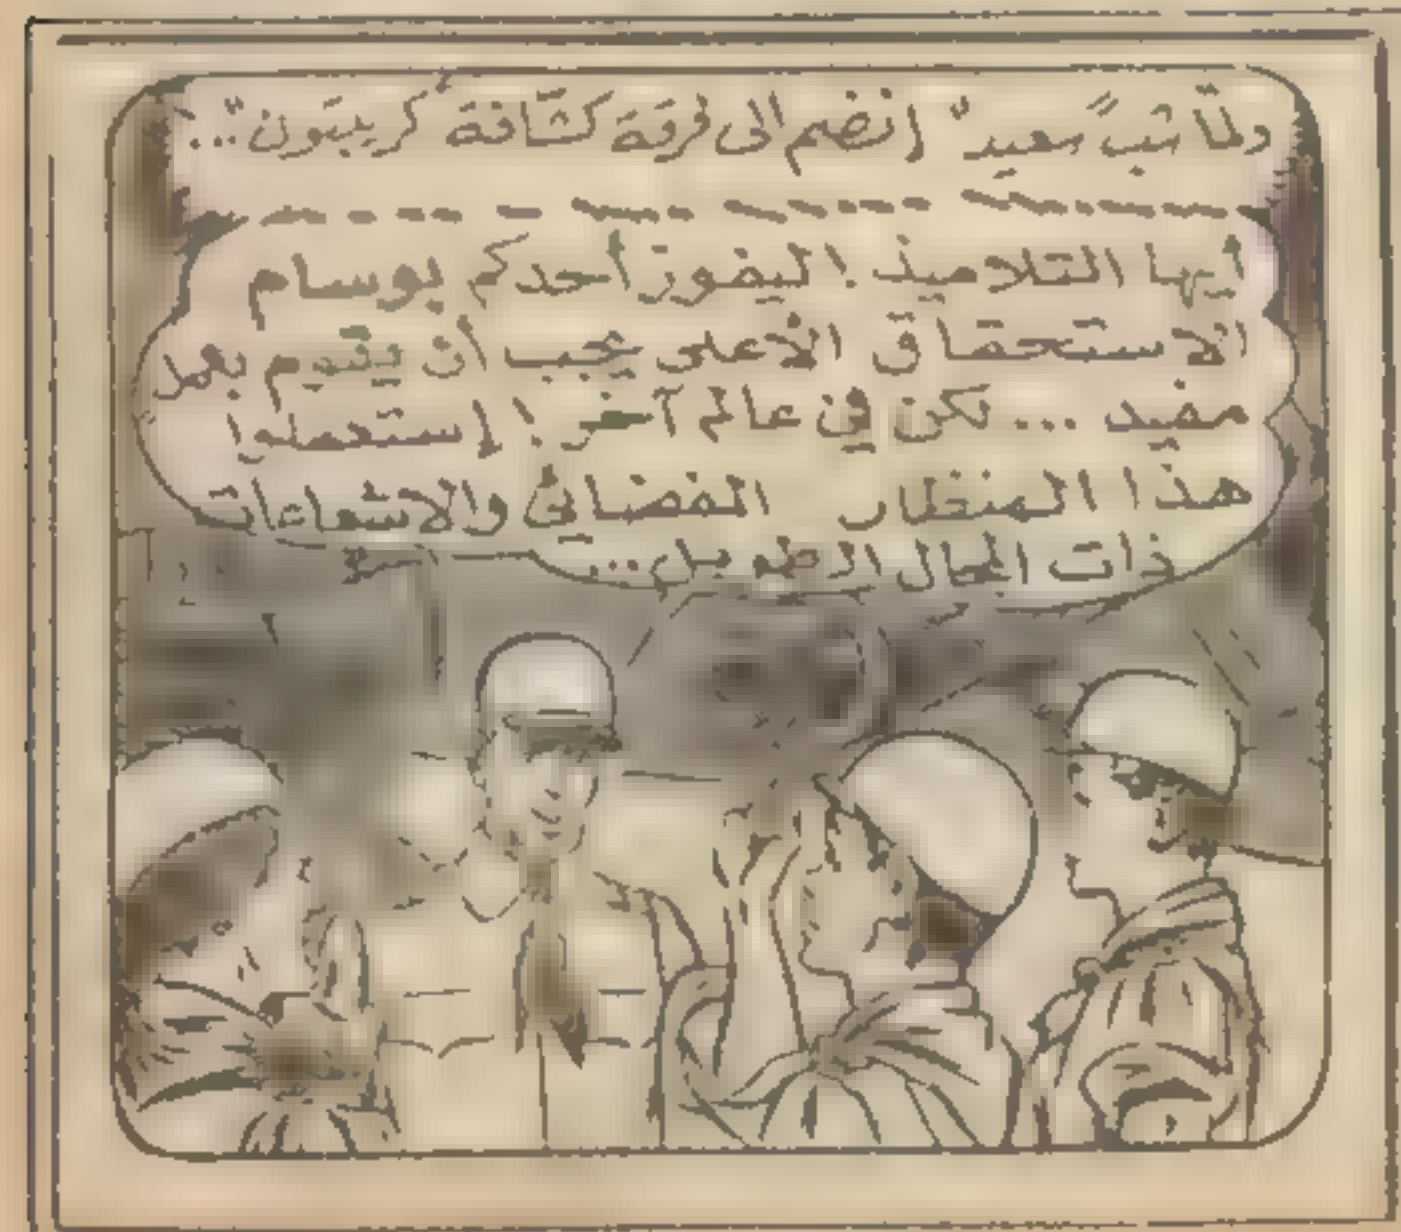 ولمّا شبّ سعيد" إنضم الى فرقة كشّافة كريبتون"...
أيها التلاميذ ! ليفوز أحدكم بوسام
الاستحقاق الأعلى يجب أن يقدم بعمل
مفيد ... لكن في عالم آخر ! إستعملوا
هذا المنظار الفضائي والاشعاعات
ذات المجال الطويل...